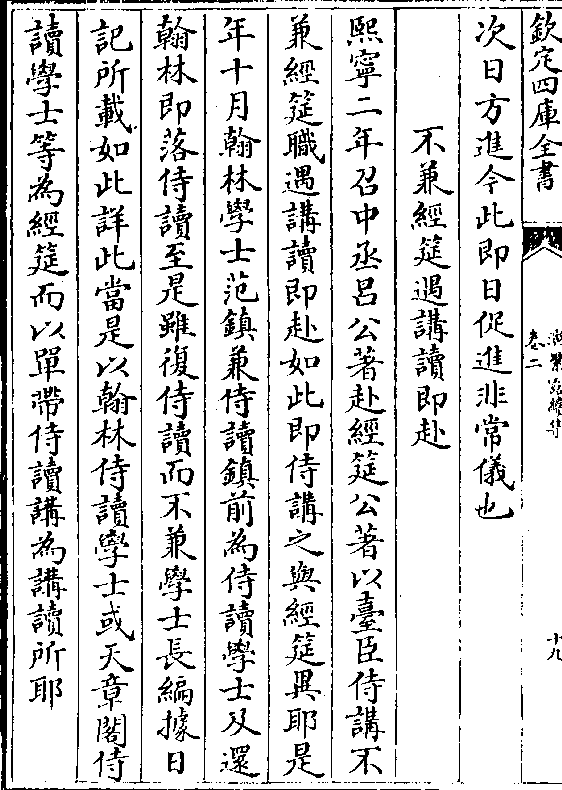 欽定四庫全書
卷二
十九
次日方進今此即日促進非常儀也
不兼經筵遇講讀即赴
熙寧二年召中丞呂公著赴經筵公著以臺臣侍講不
兼經筵職遇講讀即赴如此即侍講之與經筵異耶是
年十月翰林學士范鎮兼侍讀鎮前為侍讀學士及還
翰林即落侍讀至是雖復侍讀而不兼學士長編據日
記所載如此詳此當是以翰林侍讀學士或天章閣侍
讀學士等為經筵而以單帶侍讀講為講讀所耶